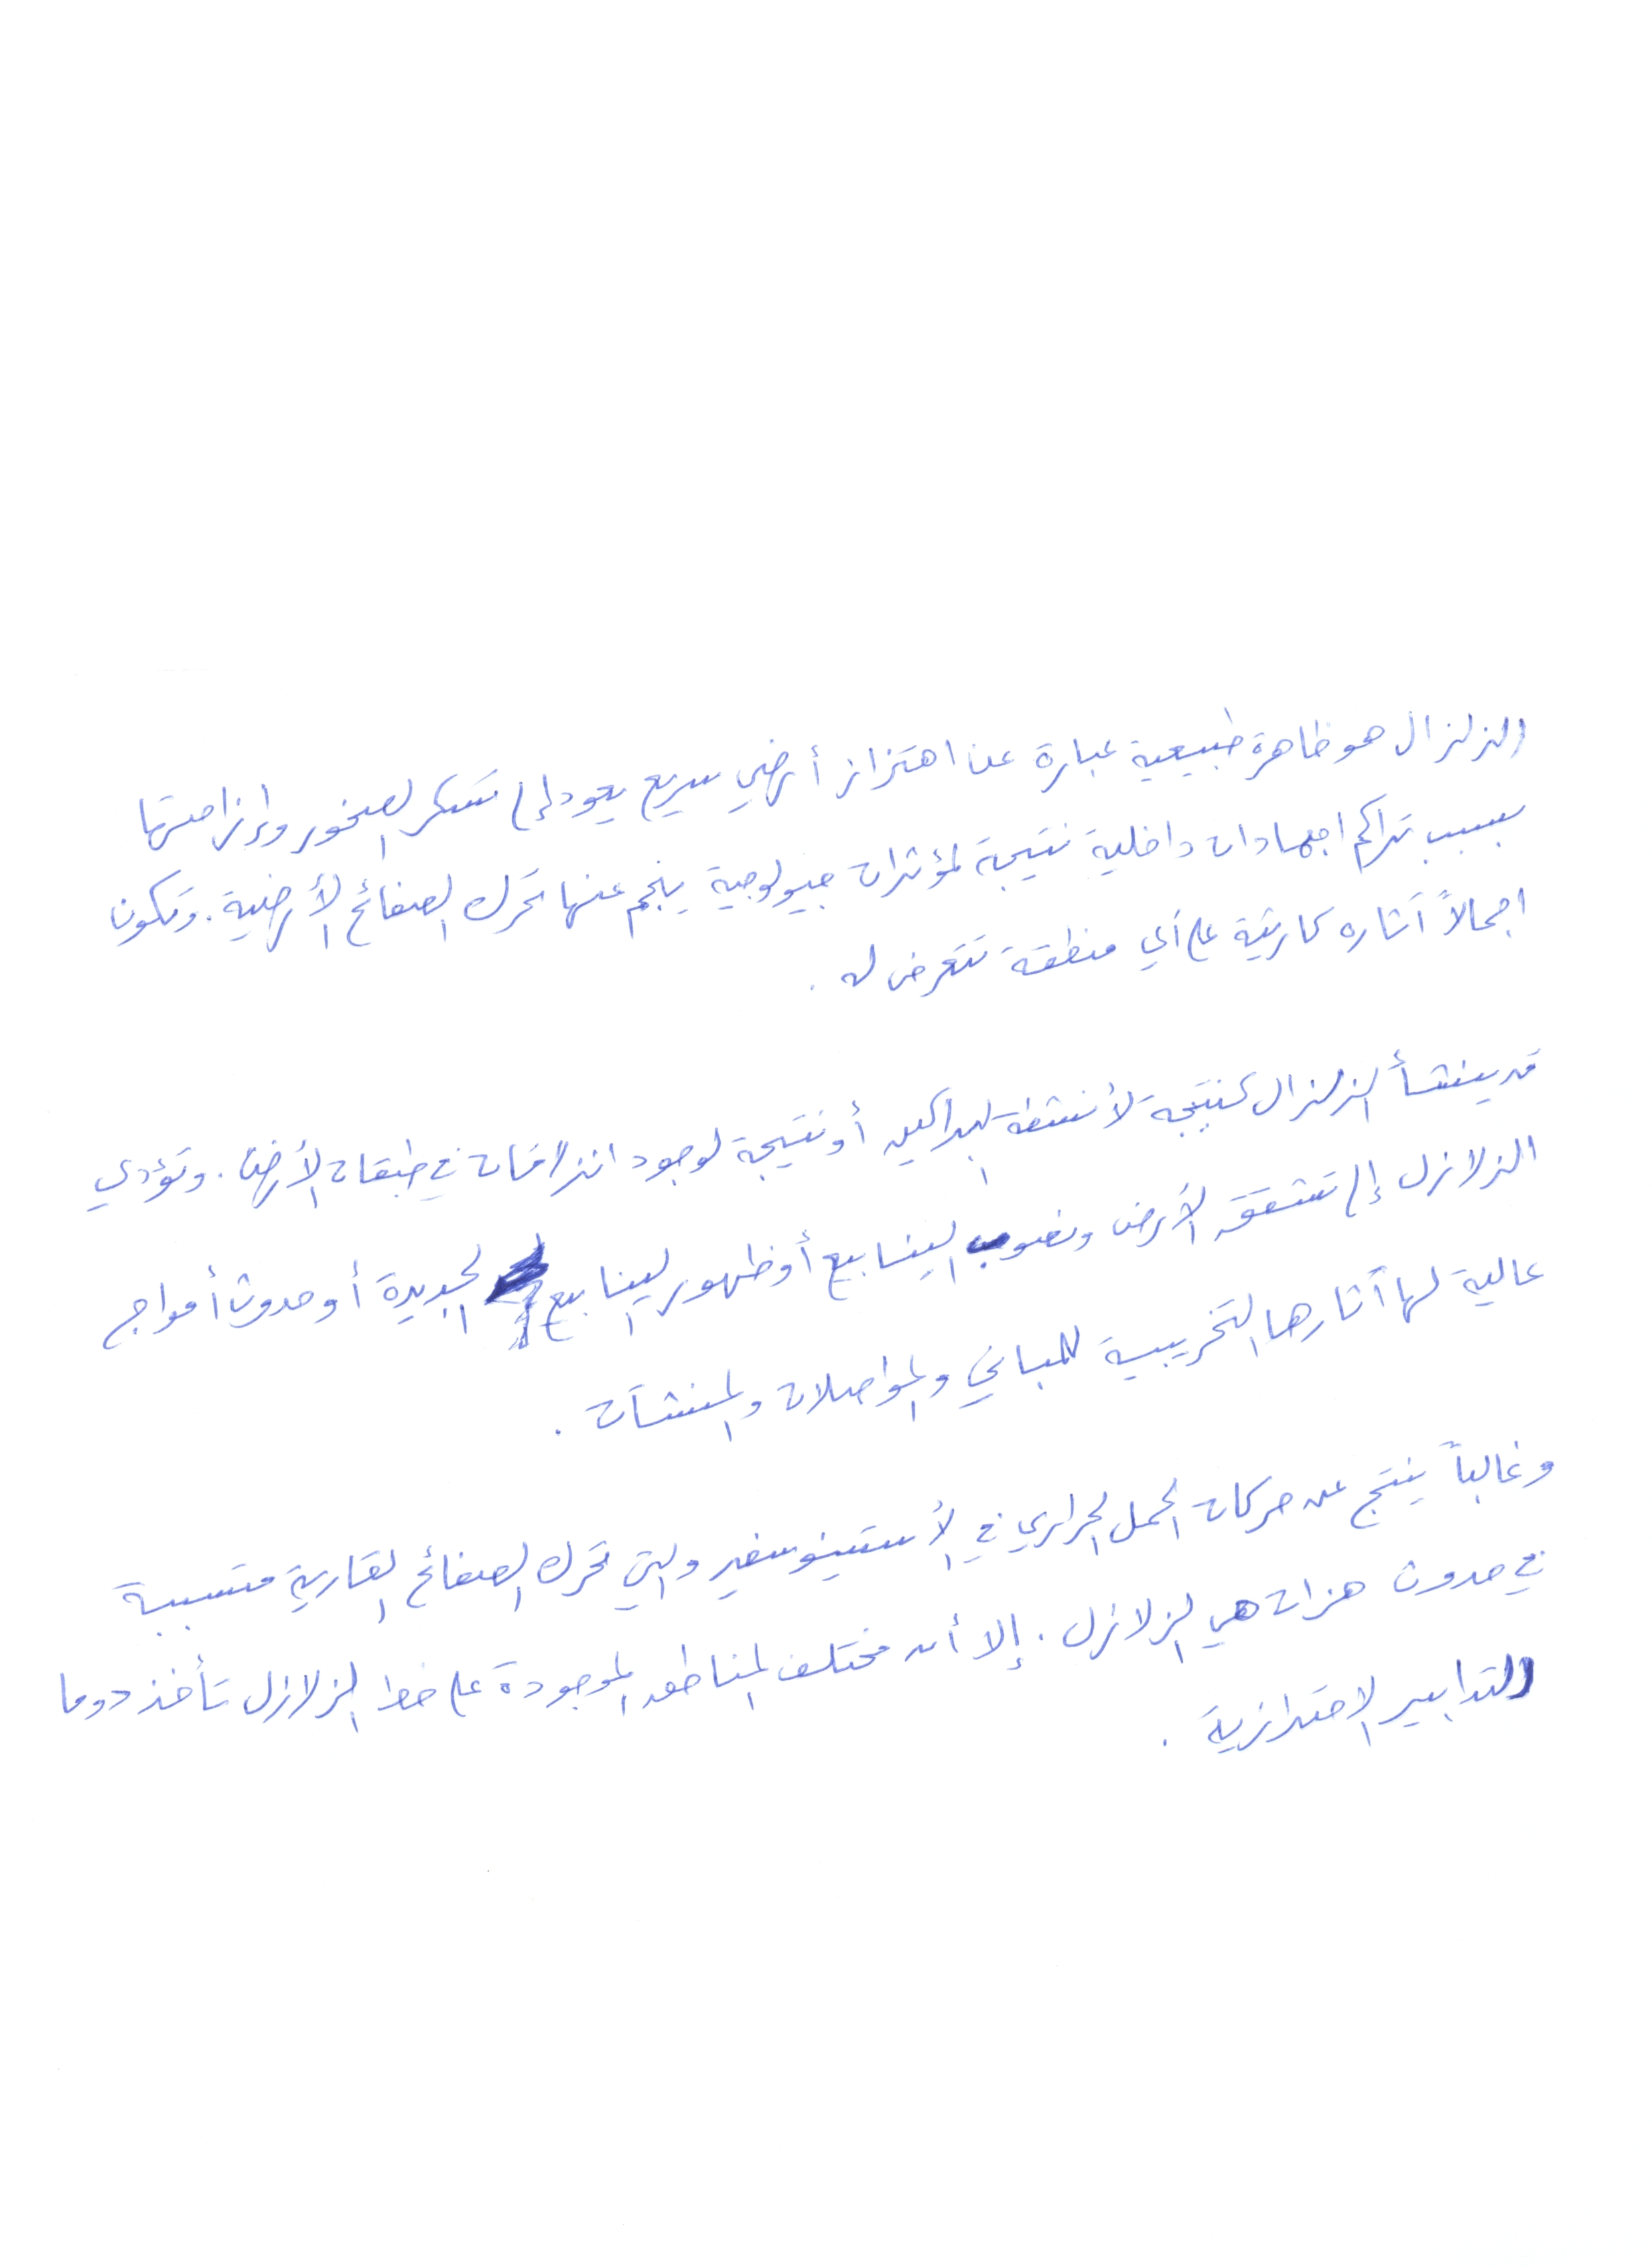 الزلزال هو ظاهرة طبيعية عبارة عن اهتزاز أرضي سريع يعود إلى تكسر الصخور وإزاحتها
بسبب تراكم اجهادات داخلية نتيجة لمؤثرات جيولوجية ينجم عنها تحرك الصفائح الأرضية. وتكون
اجمالاً آثاره كارثية على أي منطقة تتعرض له .
قد ينشأ الزلزال كنتيجة لأنشطة البراكين أو نتيجة لوجود انزلاقات في طبقات الأرض. وتؤدي
الزلازل إلى تشقق الأرض ونضوب الينابيع أو ظهور الينابيع الجديدة أو حدوث أمواج
عالية لها آثارها التخريبية للمباني والمواصلات والمنشآت .
وغالباً ينتج عن حركات الحمل الحراري في الأستينوسفير والتي تحرك الصفائح القارية متسببة
في حدوث هزات هي الزلازل . إلا أن مختلف المناطق الموجودة على خط الزلازل تأخذ دوما
التدابير الاحترازية .